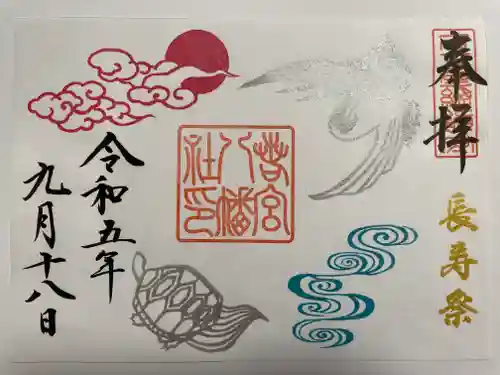 奉拝
長寿祭
若宮
八幡
社印
令和五年
九月十八日